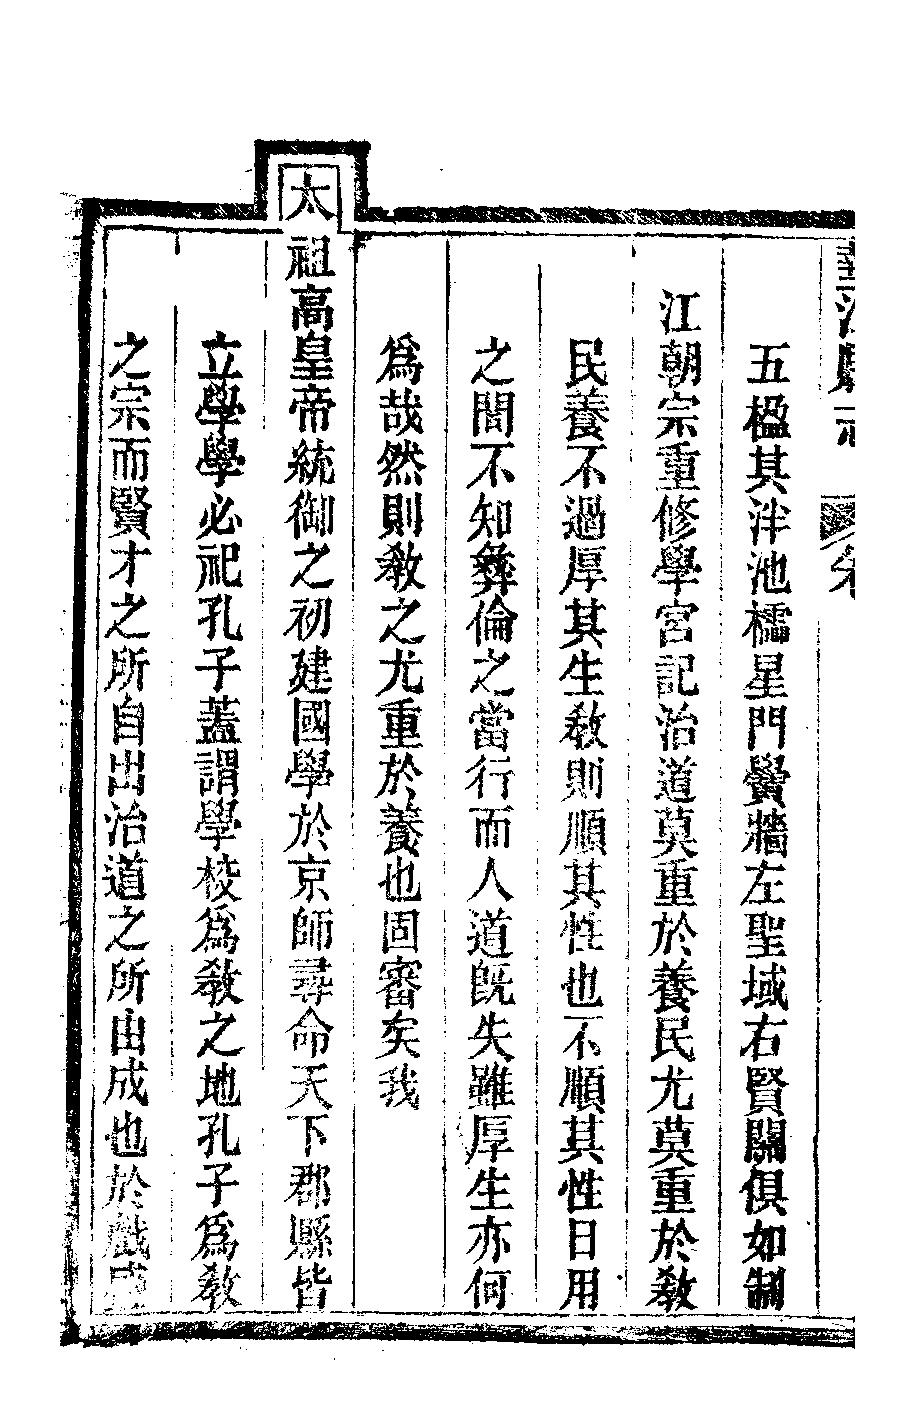 江縣志 卷
五楹其泮池櫺星門黌牆左聖域右賢關俱如制
江朝宗重修學宮記治道莫重於養民尤莫重於敎
民養不過厚其生敎則順其性也不順其性日用
之間不知彝倫之當行而人道旣失雖厚生亦何
爲哉然則敎之尤重於養也固審矣我
太祖高皇帝統御之初建國學於京師尋命天下郡縣皆
立學學必祀孔子蓋謂學校爲敎之地孔子爲敎
之宗而賢才之所自出治道之所由成也於戲